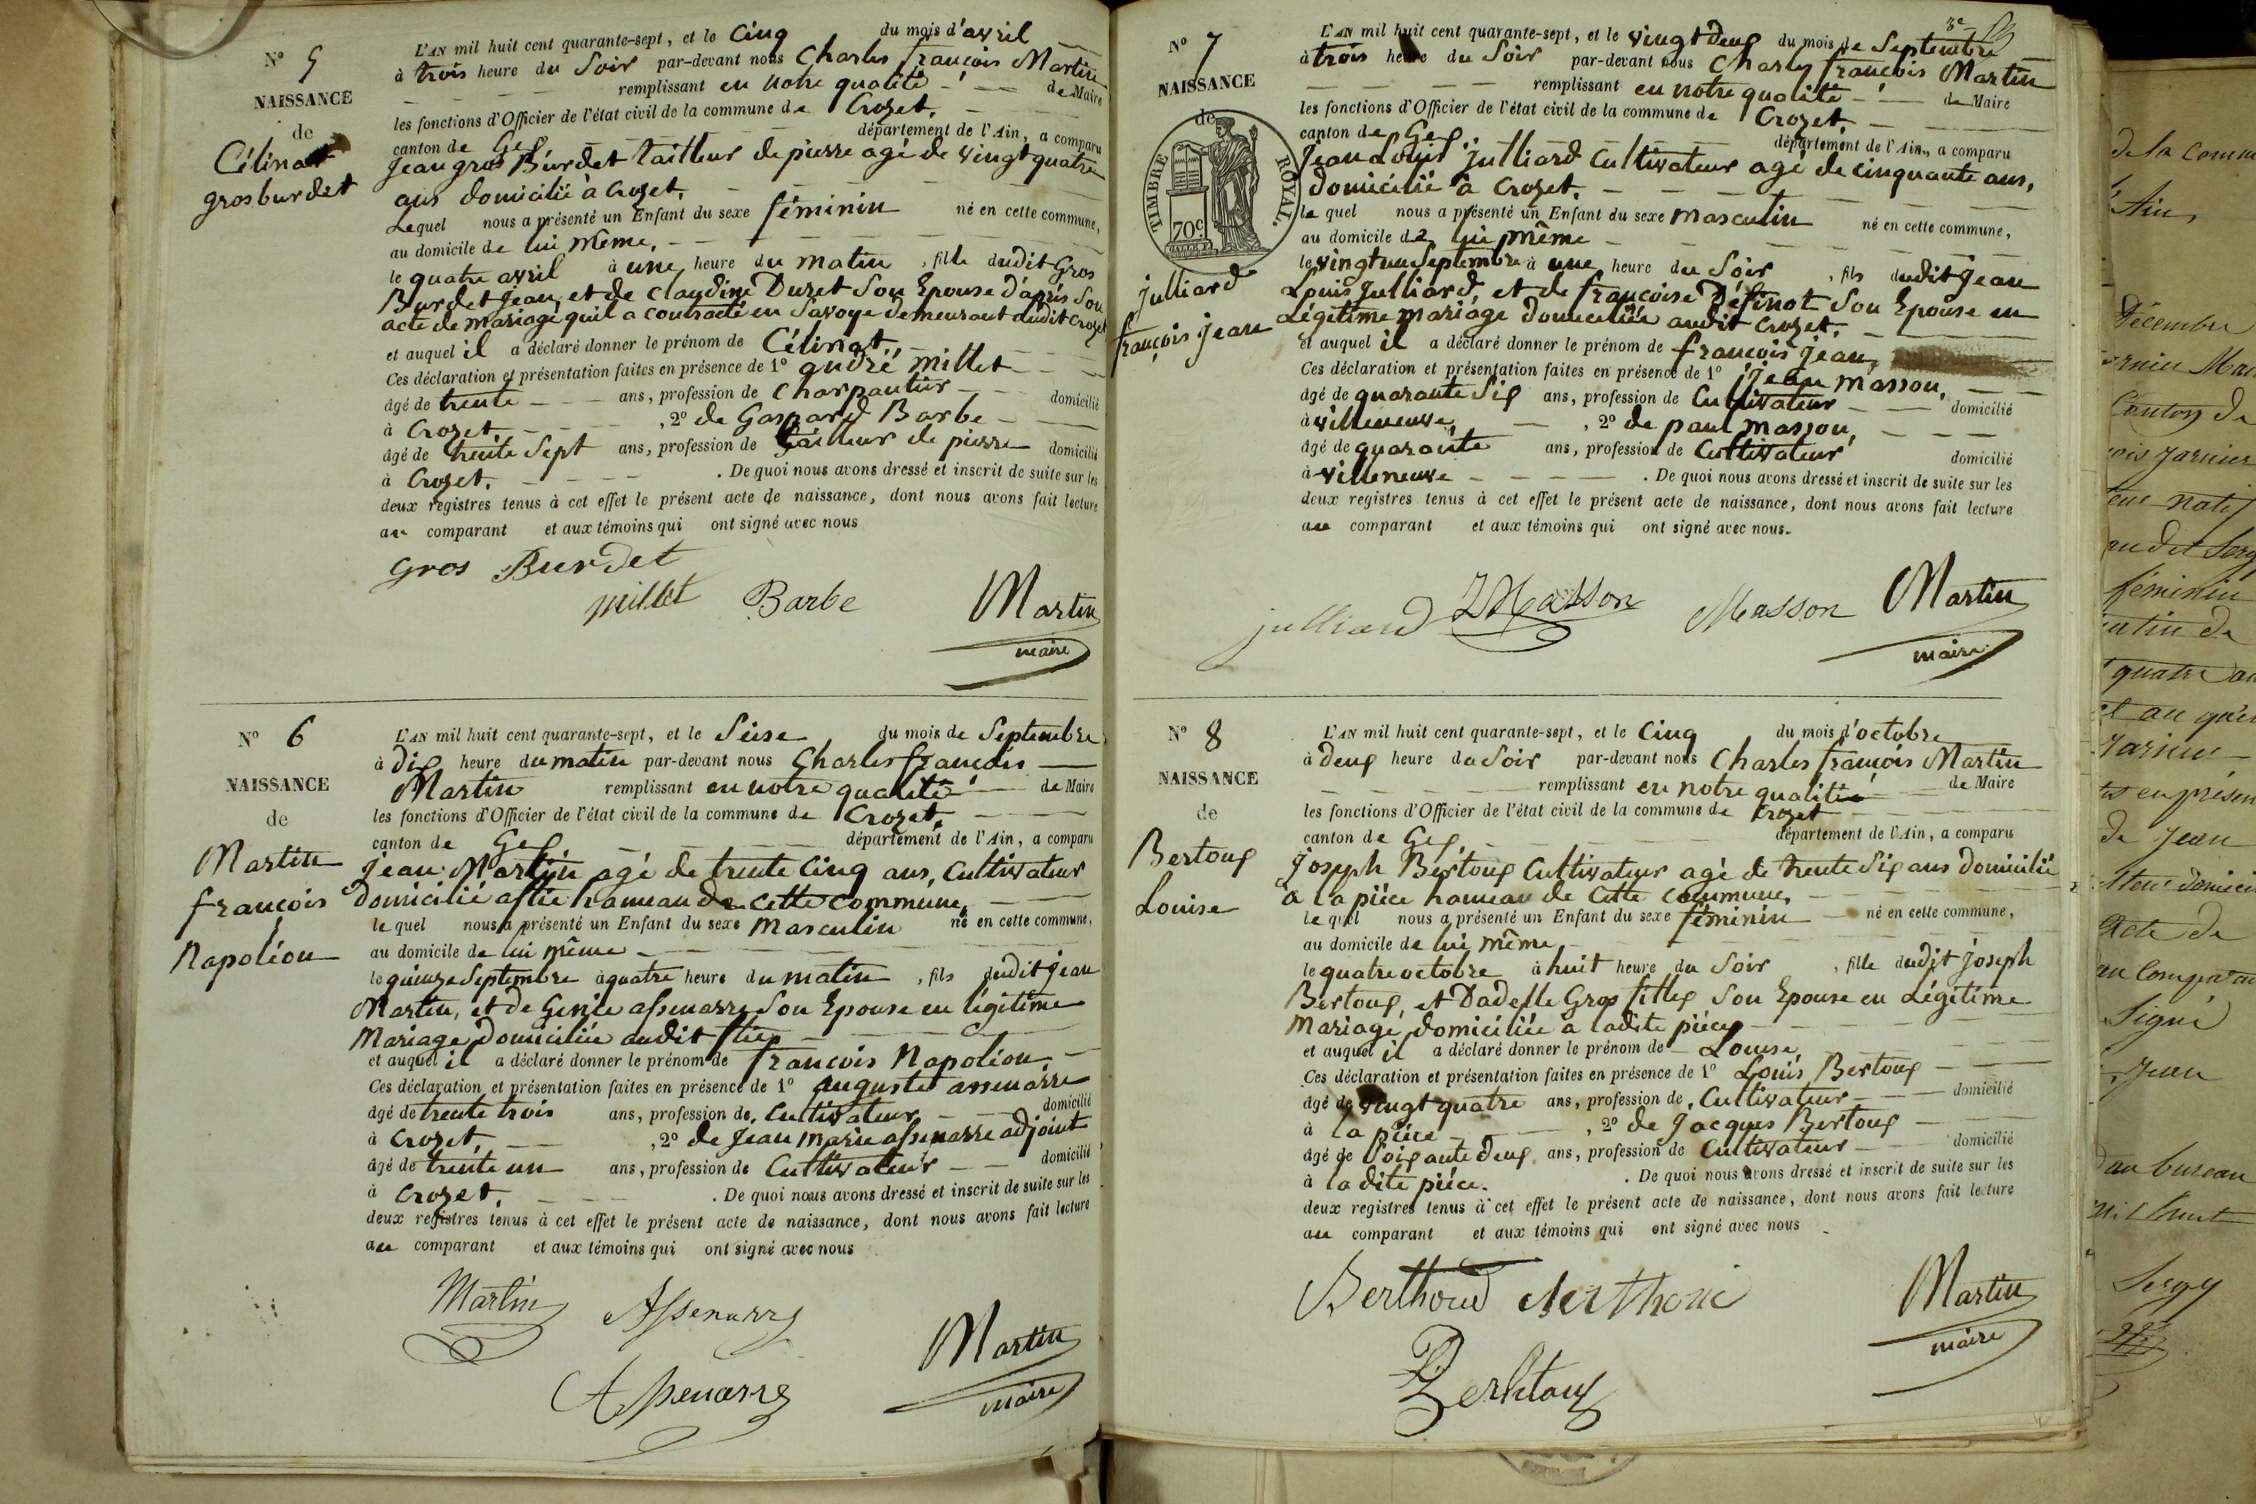 N° 5
NAISSANCE
de
Célinat
grosburdet
L'AN mil huit cent quarante-sept, et le Cinq du mois d'avril
à trois heure du Soir par-devant nous Charles françois Martin
remplissant en notre qualité de Maire
les fonctions d'Officier de l'état civil de la commune de Crozet,
canton de Gex, département de l'Ain, a comparu
Jean gros Burdet tailleur de pierre agé de vingt quatre
ans domicilié à Crozet,
Lequel nous a présenté un Enfant du sexe féminin né en cette commune,
au domicile de lui même,
le quatre avril à une heure du matin, fille dudit Gros
Burdet Jean, et de Claudine Duret Son Epouse d'après Son
acte de mariage qu'il a contracté en Savoye demeurant audit Crozet
et auquel il a déclaré donner le prénom de Célinat,
Ces déclaration et présentation faites en présence de 1° andré Millet
âgé de trente ans, profession de Charpantier domicilié
à Crozet, , 2° de Gaspard Barbe
âgé de trente Sept ans, profession de tailleur de pierre domicilié
à Crozet. . De quoi nous avons dressé et inscrit de suite sur les
deux registres tenus à cet effet le présent acte de naissance, dont nous avons fait lecture
au comparant et aux témoins qui ont signé avec nous
Gros Burdet
millet Barbe Martin
maire
N° 6
NAISSANCE
de
Martin
françois
Napoléon
L'AN mil huit cent quarante-sept, et le Seise du mois de Septembre
à dix heure du matin par-devant nous Charles françois
Martin remplissant en notre qualité de Maire
les fonctions d'Officier de l'état civil de la commune de Crozet,
canton de Gex, département de l'Ain, a comparu
Jean Martin agé de trente Cinq ans, Cultivateur
domicilié a flie hameau de cette commune,
le quel nous a présenté un Enfant du sexe Masculin né en cette commune,
au domicile de lui même
le quinze Septembre à quatre heure du matin, fils dudit Jean
Martin, et de assenarre Son Epouse en légitime
Mariage, domiciliée audit flie
et auquel il a déclaré donner le prénom de françois Napoléon,
Ces déclaration et présentation faites en présence de 1° auguste assenarre
âgé de trente trois ans, profession de Cultivateur domicilié
à Crozet, , 2° de Jean Marie assenarre adjoint
âgé de trente un ans, profession de Cultivateur domicilié
à Crozet, . De quoi nous avons dressé et inscrit de suite sur les
deux registres tenus à cet effet le présent acte de naissance, dont nous avons fait lecture
au comparant et aux témoins qui ont signé avec nous
Martin Assenarre
Assenarre Martin
maire
3e
N° 7
NAISSANCE
de
TIMBRE ROYAL.
70c
Julliard
françois Jean
L'AN mil huit cent quarante-sept, et le vingt deux du mois de Septembre
à trois heure du Soir par-devant nous Charles françois Martin
remplissant en notre qualité de Maire
les fonctions d'Officier de l'état civil de la commune de Crozet,
canton de Gex, département de l'Ain, a comparu
Jean Louis Julliard Cultivateur agé de cinquante ans,
domicilié à Crozet,
le quel nous a présenté un Enfant du sexe masculin né en cette commune,
au domicile de lui même
le vingt un Septembre à une heure du Soir, fils dudit Jean
Louis Julliard, et de françoise Son Epouse en
Légitime mariage domiciliée audit Crozet,
et auquel il a déclaré donner le prénom de françois Jean,
Ces déclaration et présentation faites en présence de 1° Jean Masson,
âgé de quarante Six ans, profession de Cultivateur domicilié
à villeneuve, , 2° de paul Masson,
âgé de quarante ans, profession de Cultivateur domicilié
à villeneuve . De quoi nous avons dressé et inscrit de suite sur les
deux registres tenus à cet effet le présent acte de naissance, dont nous avons fait lecture
au comparant et aux témoins qui ont signé avec nous.
julliard Masson Masson Martin
maire
N° 8
NAISSANCE
de
Bertoux
Louise
L'AN mil huit cent quarante-sept, et le Cinq du mois d'octobre
à deux heure du Soir par-devant nous Charles françois Martin
remplissant en notre qualitée de Maire
les fonctions d'Officier de l'état civil de la commune de Crozet
canton de Gex, département de l'Ain, a comparu
Joseph Bertoux Cultivateur agé de trente Six ans domicilié
a la pièce hameau de Cette Commune,
le quel nous a présenté un Enfant du sexe féminin né en cette commune,
au domicile de lui même,
le quatre octobre à huit heure du Soir, fille dudit Joseph
Bertoux, et Gros Son Epouse en Légitime
Mariage, domiciliée a ladite pièce
et auquel il a déclaré donner le prénom de Louise,
Ces déclaration et présentation faites en présence de 1° Louis Bertoux
âgé de vingt quatre ans, profession de Cultivateur domicilié
à la pièce , 2° de Jacques Bertoux
âgé de Soixante deux ans, profession de Cultivateur domicilié
à la dite pièce. . De quoi nous avons dressé et inscrit de suite sur les
deux registres tenus à cet effet le présent acte de naissance, dont nous avons fait lecture
au comparant et aux témoins qui ont signé avec nous
Berthoud Martin
maire
de la comm
Ain,
Décembre
Canton de
natif
féminin
quatre
de Jean
Acte de
Signé
Jean
au bureau
mil huit
Sergy